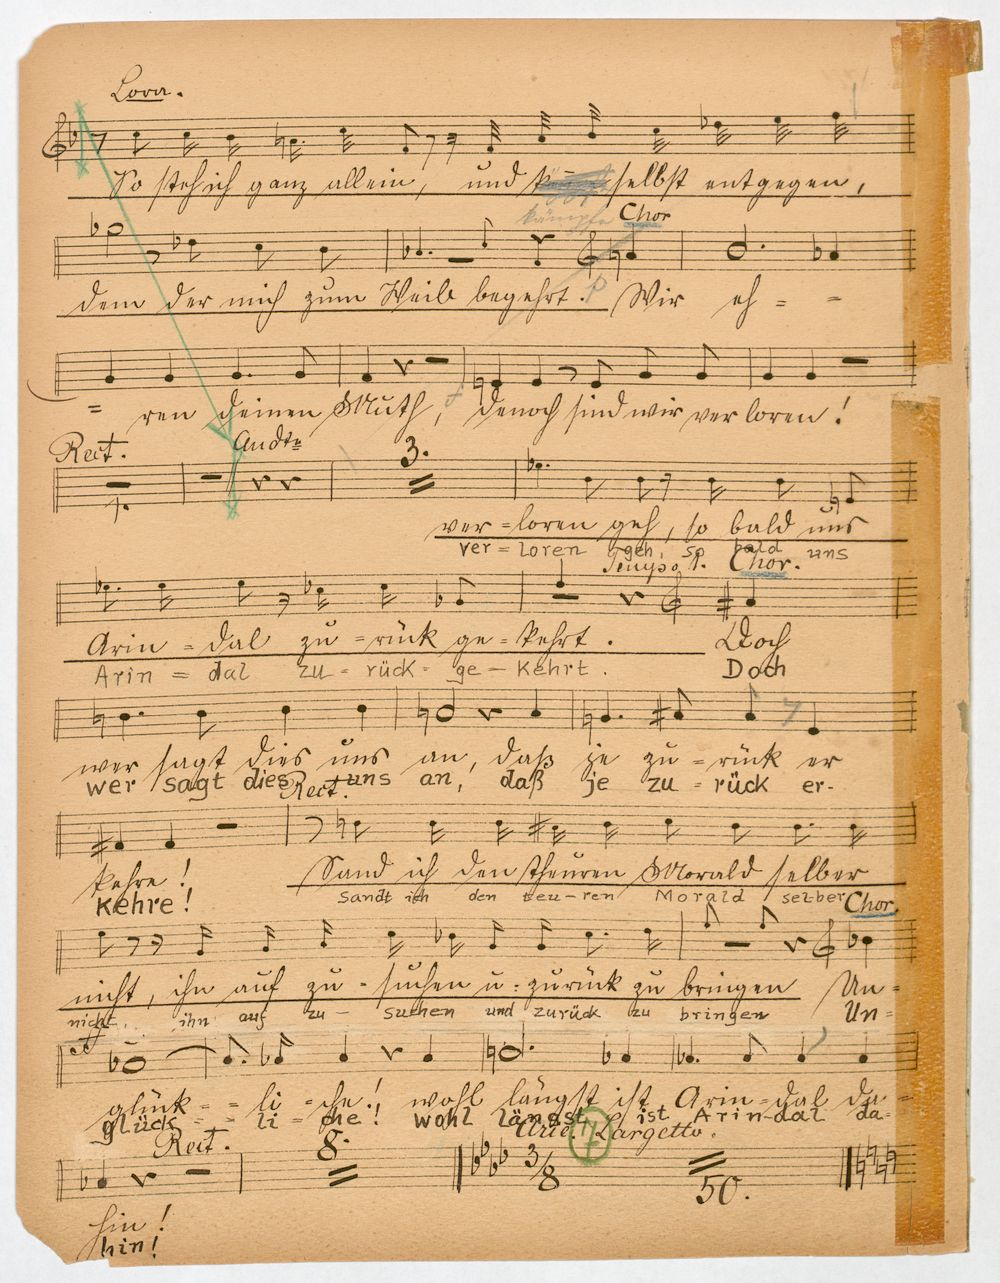 Lora.
So steh ich ganz allein, und selbst entgegen,
kämpfe Chor
dem der mich zum Weib begehrt. Wir eh = =
p
= ren deinen Muth, denoch sind wir verloren!
Rect. Andte
3.
ver = loren geh, so bald uns
ver = loren geh, so bald uns
Tempo 1. Chor.
Arin = dal zu = rück ge = kehrt. Doch
Arin = dal zu - rück - ge - Kehrt. Doch
wer sagt dies uns an, daß je zu = rück er
wer sagt dies uns an, daß je zu = rück er-
Rect.
kehre! Sand ich den theuren Morald selber
Kehre! Sandt ich den teu-ren Morald selber Chor.
nicht, ihn auf zu = suchen u = zurück zu bringen Un =
nicht, ihn auf zu - suchen und zurück zu bringen Un =
glük = = li = che! wohl längst ist Arin = dal da =
glück = = li = che! wohl längst ist Arin-dal da-
Rect. 8. Arie. 17 Largetto.
3/8 50.
hin!
hin!